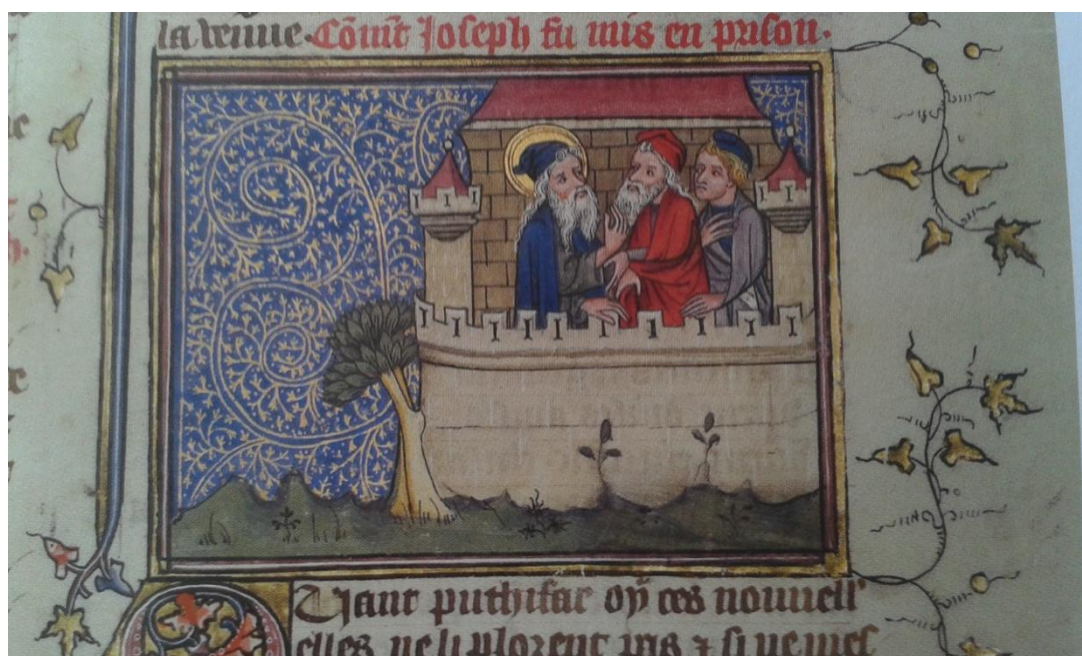 la venue. Cõmt Joseph fu mis en prison.
Quant puthifar oÿ ces nouuell'
elles ne li plorent pas ⁊ si ne mes